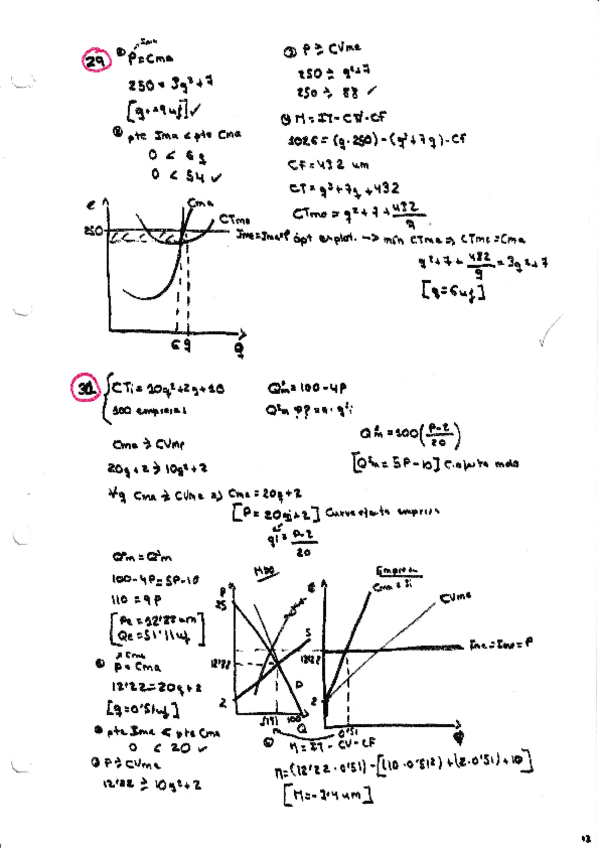 29 ① P = Cma
Ima
250 = 3q²+7
[q = 9 uf] ✓
② pte Ima < pte Cma
0 < 6q
0 < 54 ✓
③ P ≥ CVme
250 ≥ q²+7
250 ≥ 88 ✓
④ Π = IT - CV - CF
1026 = (q·250) - (q³+7q) - CF
CF = 432 um
CT = q³+7q+432
CTme = q²+7+432/q
€
250
Cma
CTme
Ime=Ima=P
6 9
Q
ópt explot. → mín CTme ⇒ CTme = Cma
q²+7+432/q = 3q²+7
[q = 6 uf]
31 CTi = 10q²+2q+10
100 empresas
Cma ≥ CVme
20q+2 ≥ 10q+2
∀q Cma ≥ CVme ⇒ Cma = 20q+2
[P = 20qi+2] Curva oferta empresa
qi = P-2/20
Qm = 100-4P
Qm = 100(P-2/20)
[Qm = 5P-10] C. oferta mdo
Qm = Qm
100-4P = 5P-10
110 = 9P
[Pe = 12'22 um
Qe = 51'11 uf]
① P = Cma
12'22 = 20q+2
[q = 0'51 uf]
② pte Ima < pte Cma
0 < 20 ✓
③ P ≥ CVme
12'22 ≥ 10q+2
MDO
P
25
12'22
2
S
D
51'11 100
Q
Empresa
€
Cma = Si
CVme
Ime=Ima=P
12'22
2
0'51
④ Π = IT - CV - CF
Π = (12'22·0'51) - [(10·0'51²)+(2·0'51)+10]
[Π = -7'4 um]